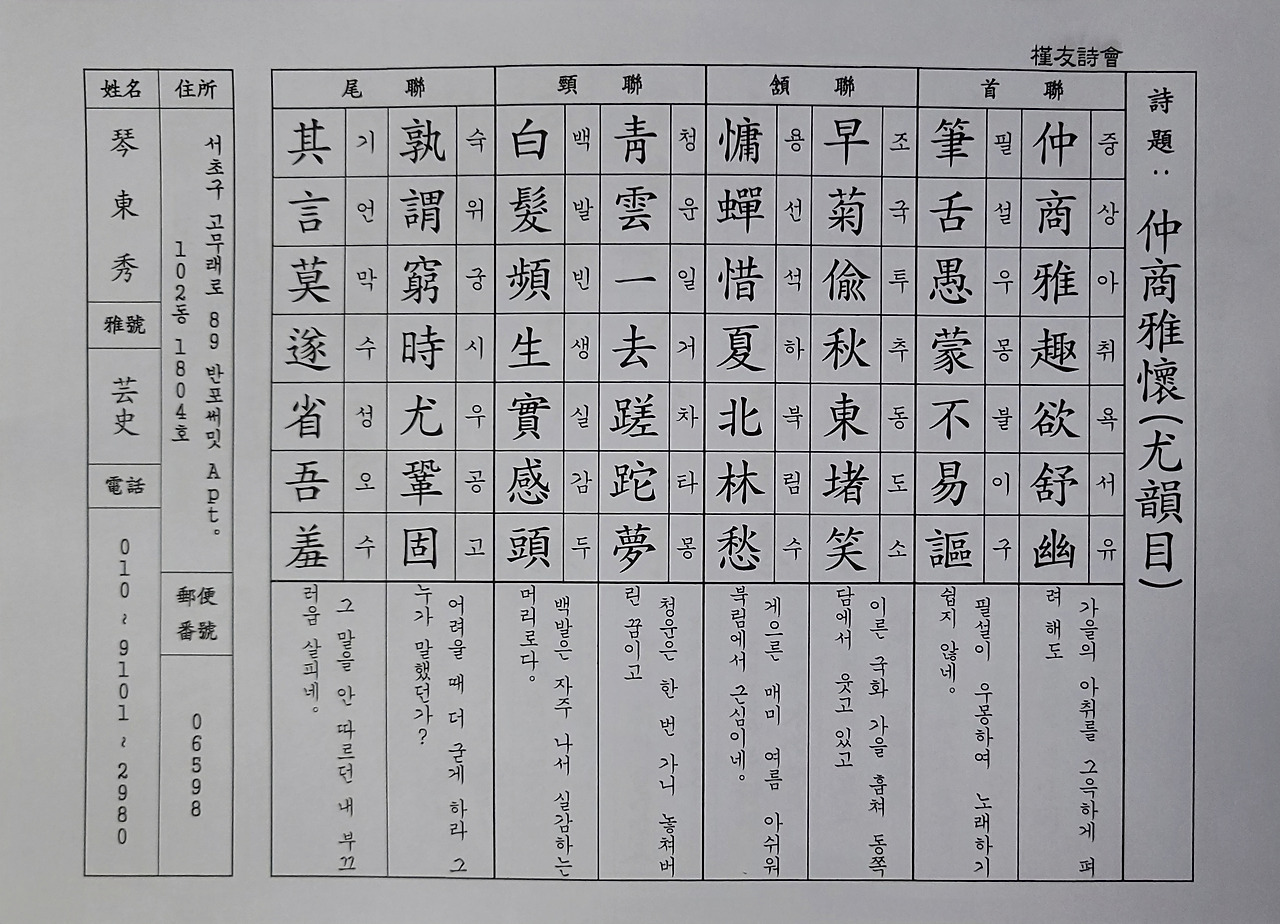 槿友詩會
詩題: 仲商雅懷(尤韻目)
首聯
중상아취욕서유
仲商雅趣欲舒幽
가을의 아취를 그윽하게 펴
려 해도
필설우몽불이구
筆舌愚蒙不易謳
필설이 우몽하여 노래하기
쉽지 않네。
頷聯
조국투추동도소
早菊偸秋東堵笑
이른 국화 가을 훔쳐 동쪽
담에서 웃고 있고
용선석하북림수
慵蟬惜夏北林愁
게으른 매미 여름 아쉬워
북림에서 근심이네。
頸聯
청운일거차타몽
靑雲一去蹉跎夢
청운은 한 번 가니 놓쳐버
린 꿈이고
백발빈생실감두
白髮頻生實感頭
백발은 자주 나서 실감하는
머리로다。
尾聯
숙위궁시우공고
孰謂窮時尤鞏固
어려울 때 더 굳게 하라 그
누가 말했던가?
기언막수성오수
其言莫遂省吾羞
그 말을 안 따르던 내 부끄
러움 살피네。
住所
서초구 고무래로 89 반포써밋 Apt。
102동 1804호
郵便
番號
06598
姓名
琴東秀
雅號
芸史
電話
010~9101~2980